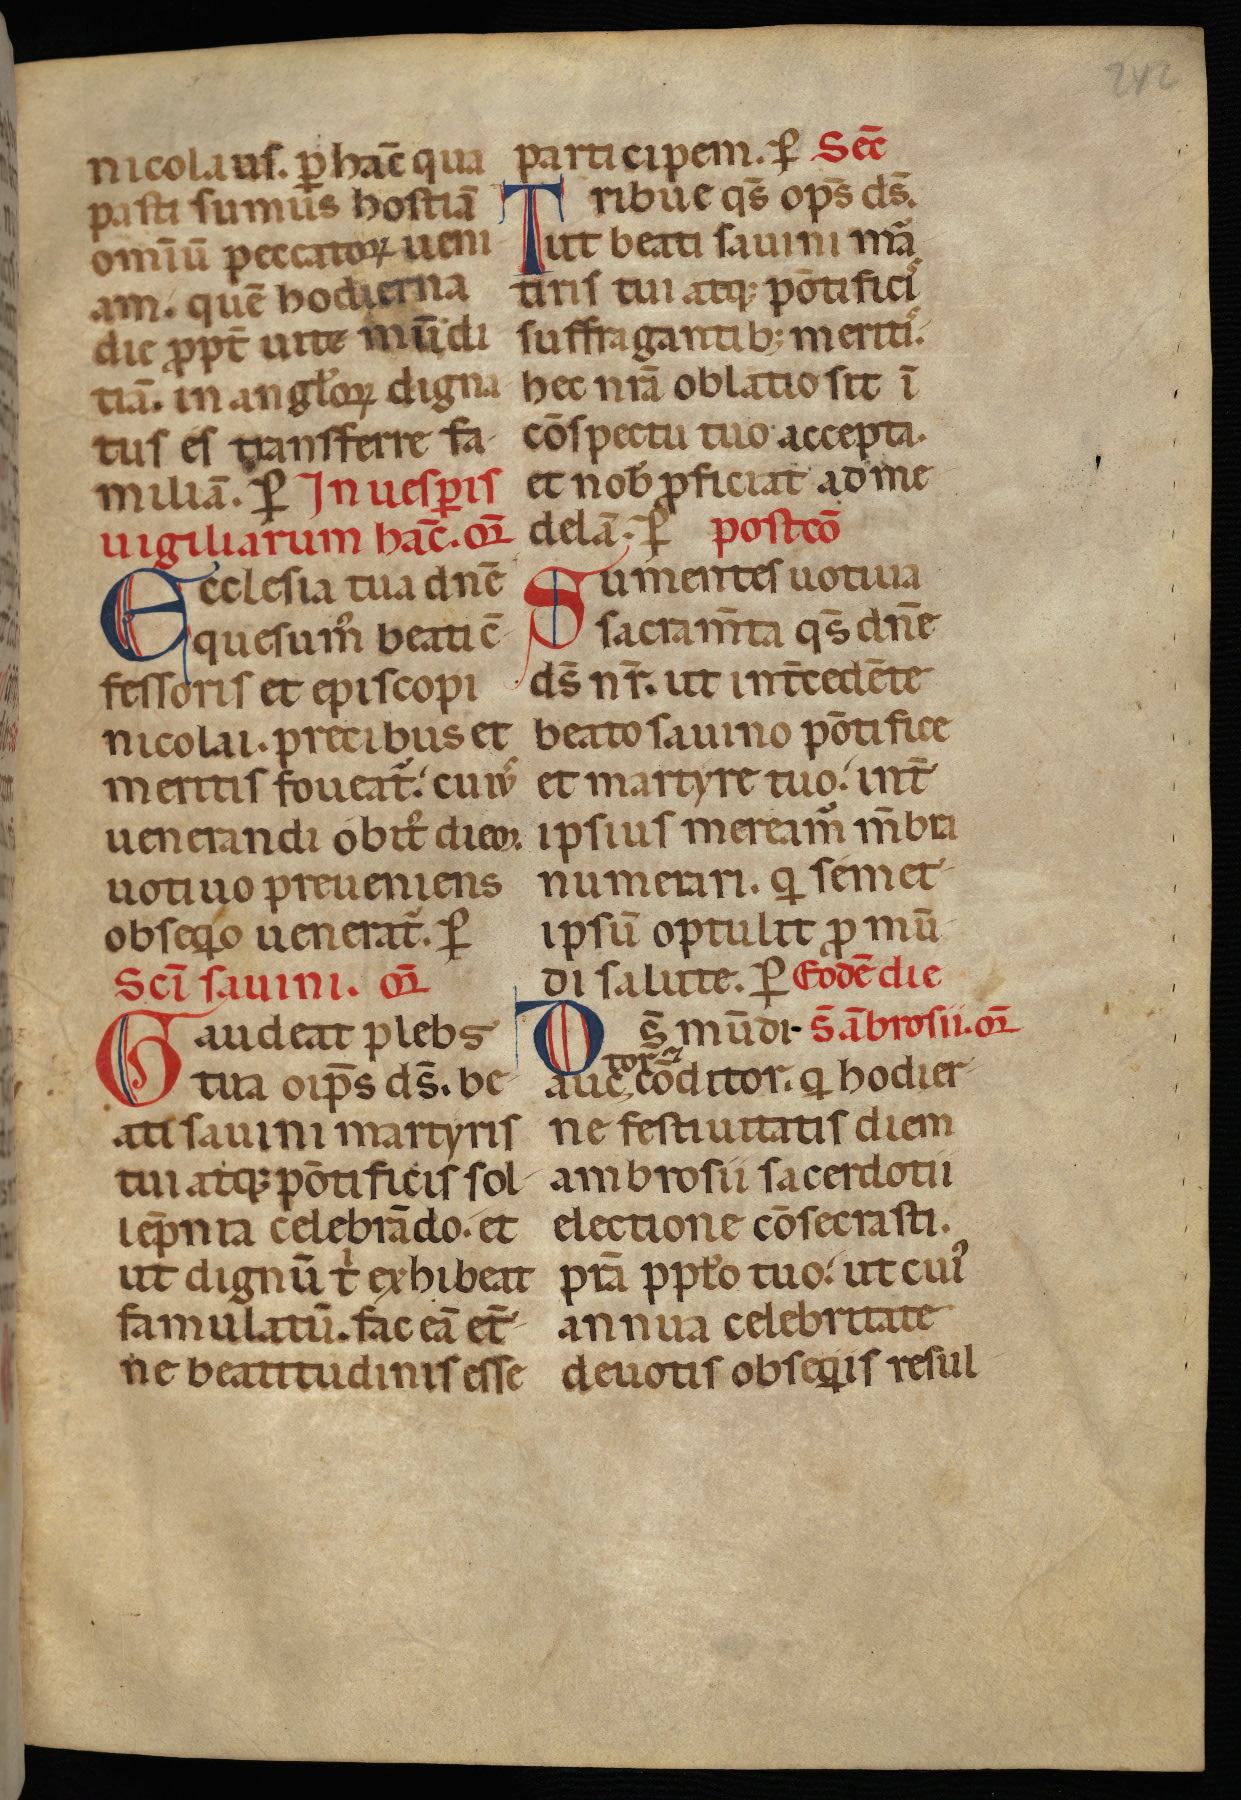 242
nicolaus. ꝑ hāc qua
pasti sumus hostiā
omīū peccatoꝝ ueni
am. quē hodierna
die ꝓpt̄ uite mūdi
tiā. in angłoꝝ digna
tus es transferre fa-
miliā. ꝑ In uesꝑis
uigiliarum hāc. or̄
Ecclesia tua dn̄e
quesum᷒ beati c̄-
fessoris et episcopi
nicolai. precibus et
meritis foueat᷑. cui᷒
uenerandi obit᷒ diem
uotiuo preueniens
obseqio uenerat᷑. ꝑ
Scī sauini. or̄
Gaudeat plebs
tua oīp̄s ds̄. be-
ati sauini martyris
tui atqꝫ pōtificis sol-
lēpnia celebrādo. et
ut dignū t̄ exhibeat
famulatū. fac eā et̄-
ne beatitudinis esse
participem. ꝑ Sec̄
Tribue qs̄ ops̄ ds̄.
ut beati sauini mar
tiris tui atqꝫ pōtificis
suffragantibꝫ meritis.
hec nr̄a oblatio sit ī
cōspectu tuo accepta.
et nob̄ ꝓficiat ad me
delā. ꝑ postcō
Sumentes uotiua
sacram̄ta qs̄ dn̄e
ds̄ nr̄. ut int̄cedēte
beato sauino pōtifice
et martyre tuo. int̄
ipsius meream᷑ m̄bra
numerari. q̇ semet-
ipsū optulit ꝓ mū-
di salute. ꝑ Eodē die
Ds̄ mūdi. s̄ ābrosii. or̄
auctor ⁊ cōditor. q̇ hodier-
ne festiuitatis diem
ambrosii sacerdotii
electione cōsecrasti.
pr̄a ppło tuo. ut cui᷒
annua celebritate
deuotis obseqiis resul